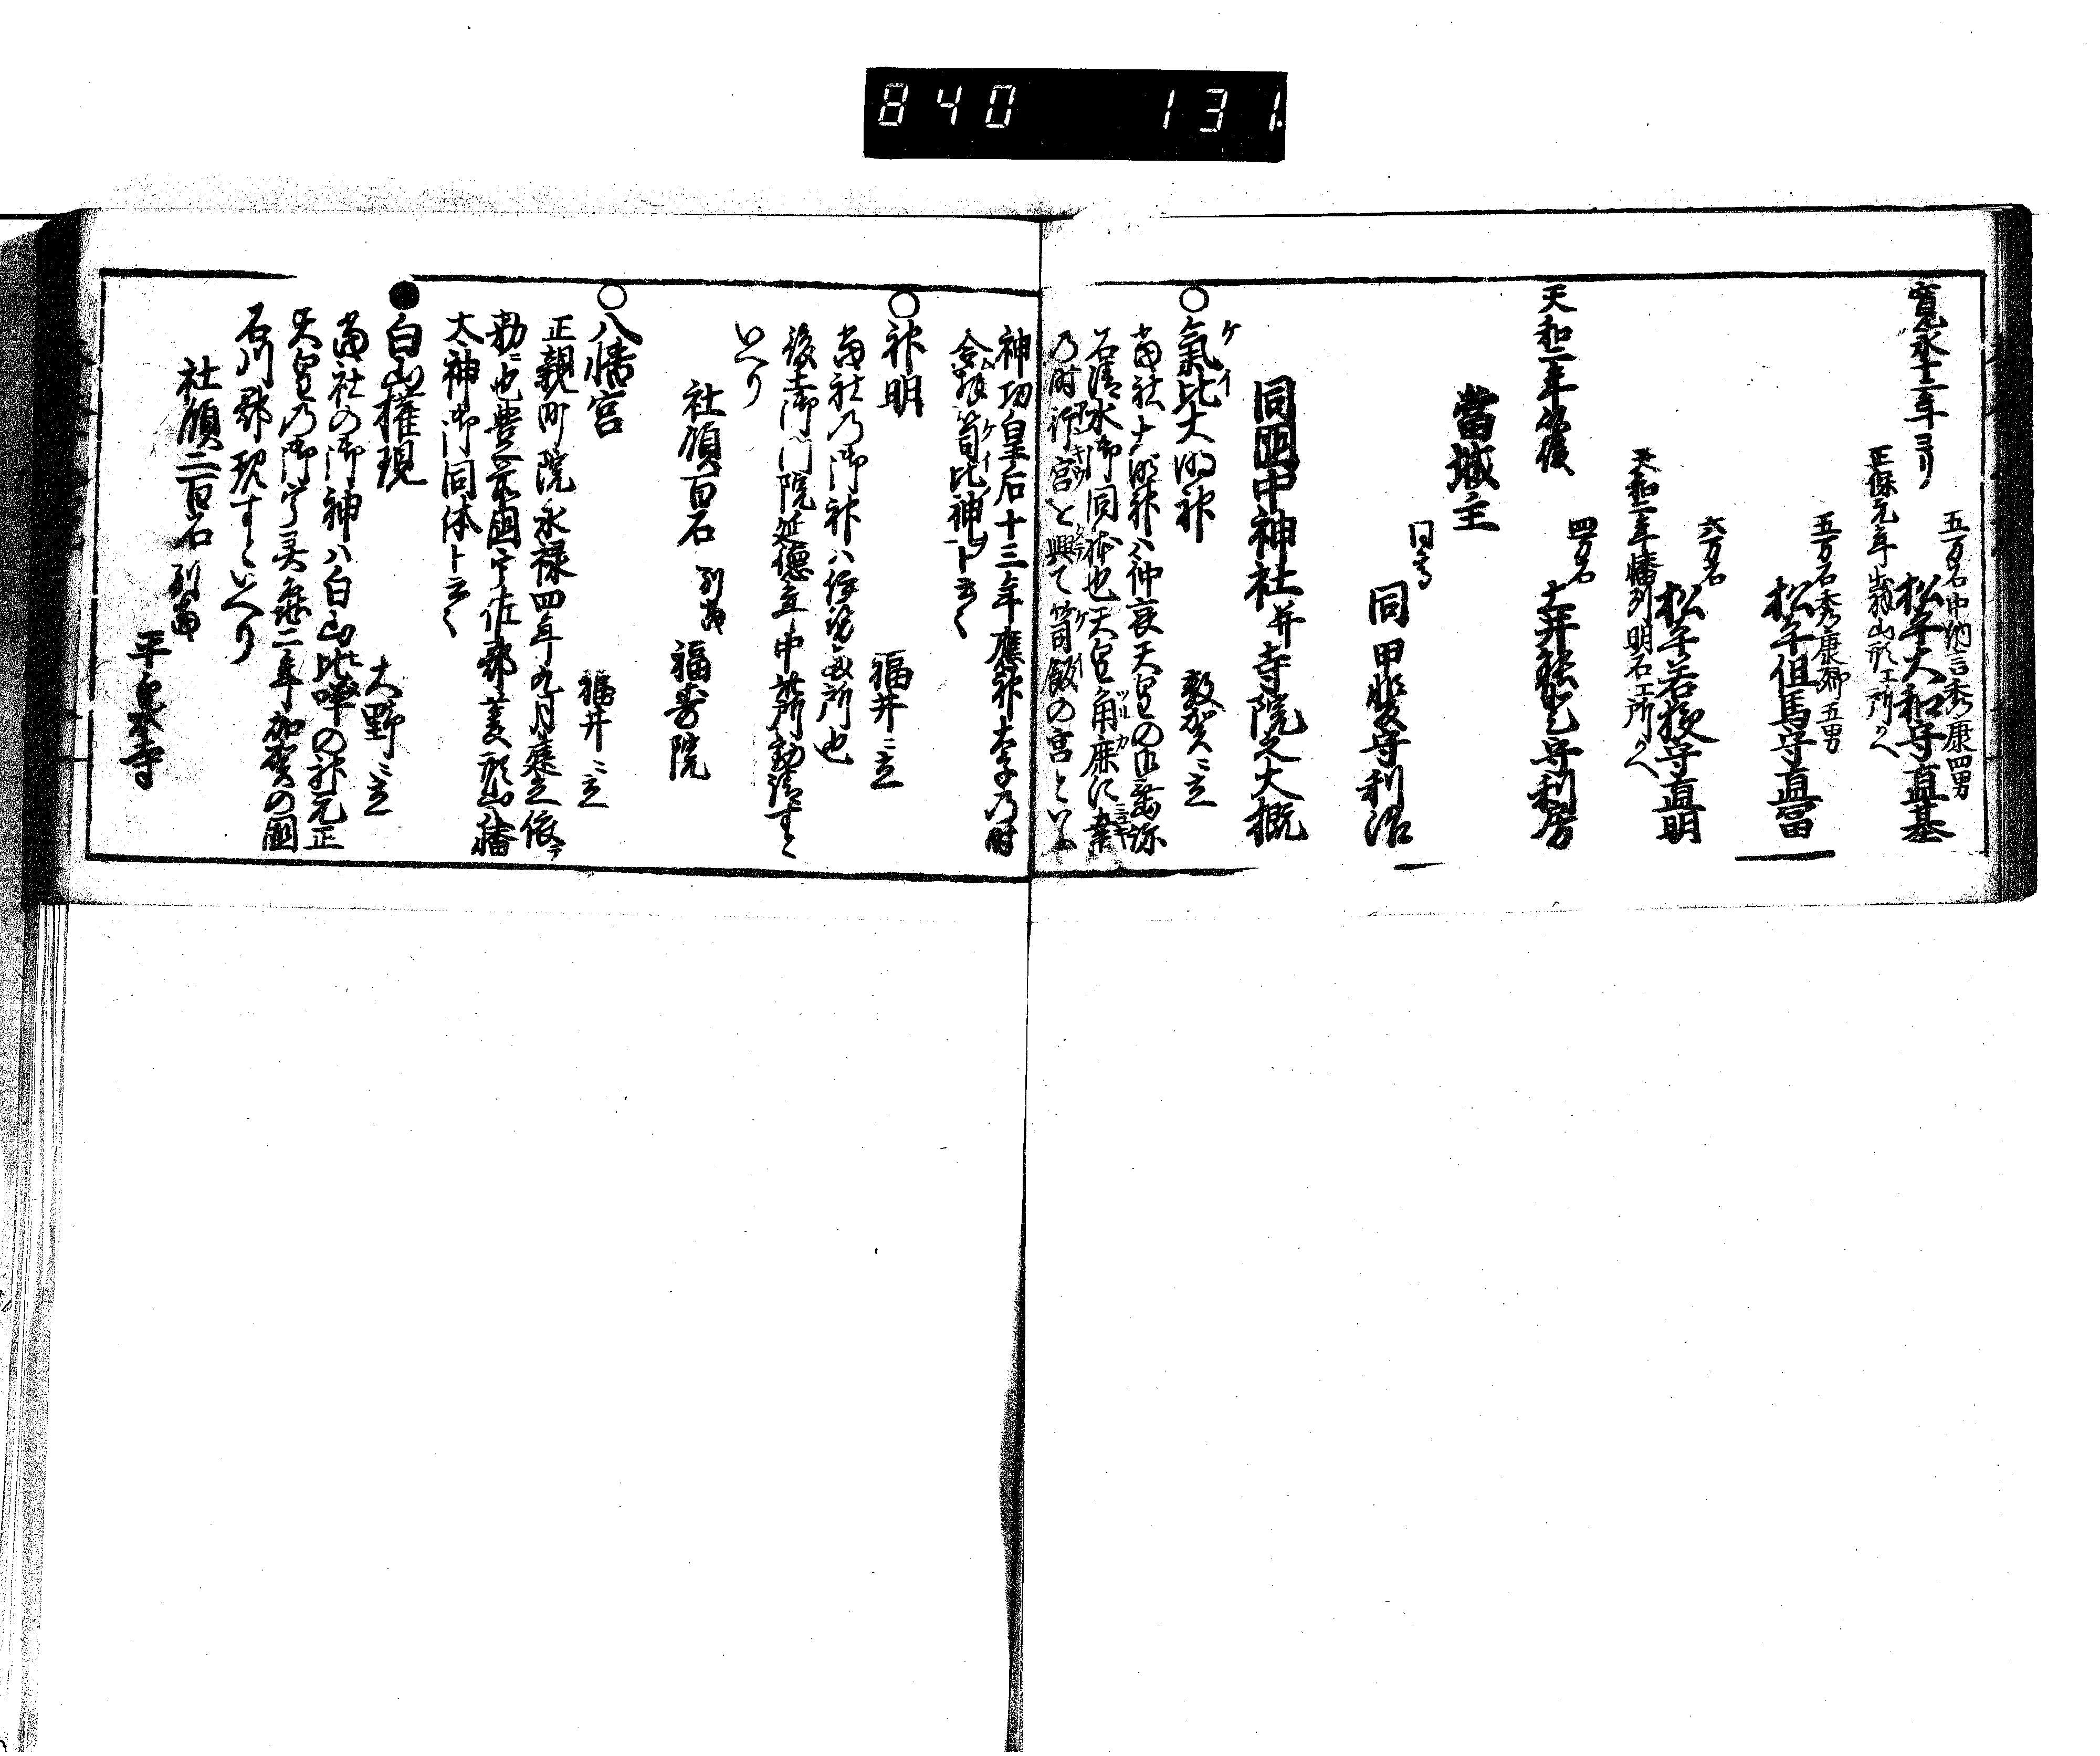 840 131
寛永十二年ヨリ
五万石中納言秀康四男
松平大和守直基
正保元年出羽山形工所カへ
五万石秀康卿五男
松平但馬守直富
六万石
松平若狭守直明
天和二年播州明石工所カへ
天和二年以後
四万石
土井能登守利房
當城主
同 甲斐守利治
同國中神社并寺院之大概
○氣比大明神 敦賀ニ立
ケイ
當社大明神ハ仲哀天皇の垂迹
石清水御同体也天皇角鹿に幸
乃時行宮を興て笥飯の宮といふ
神功皇后十三年應神太子乃時
令拜笥比神ヲト云々
○神明 福井ニ立
當社乃御神ハ伊勢同所也
後土御門院延德年中此所勧請すと
いへり
社領百石 別當 福壽院
○八幡宮 福井ニ立
正親町院永禄四年九月建之依テ
勅ニ也豊前國宇佐郡菱形山八幡
太神御同体ト云々
●白山權現 大野ニ立
當社の御神ハ白山比咩の神元正
天皇乃御宇霊亀二年加賀の國
石川郡現すといへり
社領二百石 別當
平泉寺